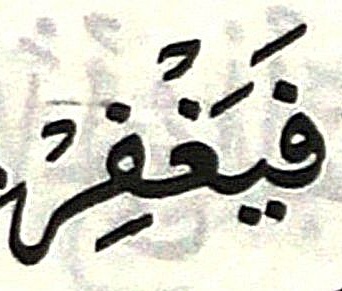 فَيَغْفِرْ